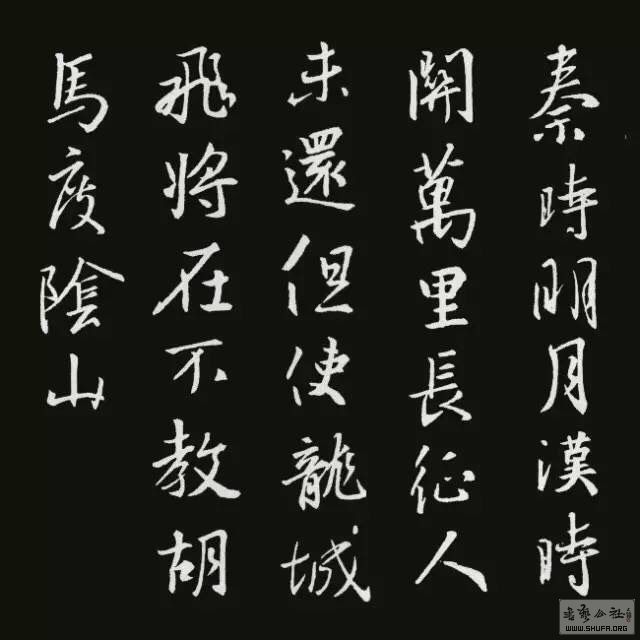 秦時明月漢時
開萬里長征人
未還但使龍城
飛将在不教胡
馬度陰山
WWW.SHUFA.ORG